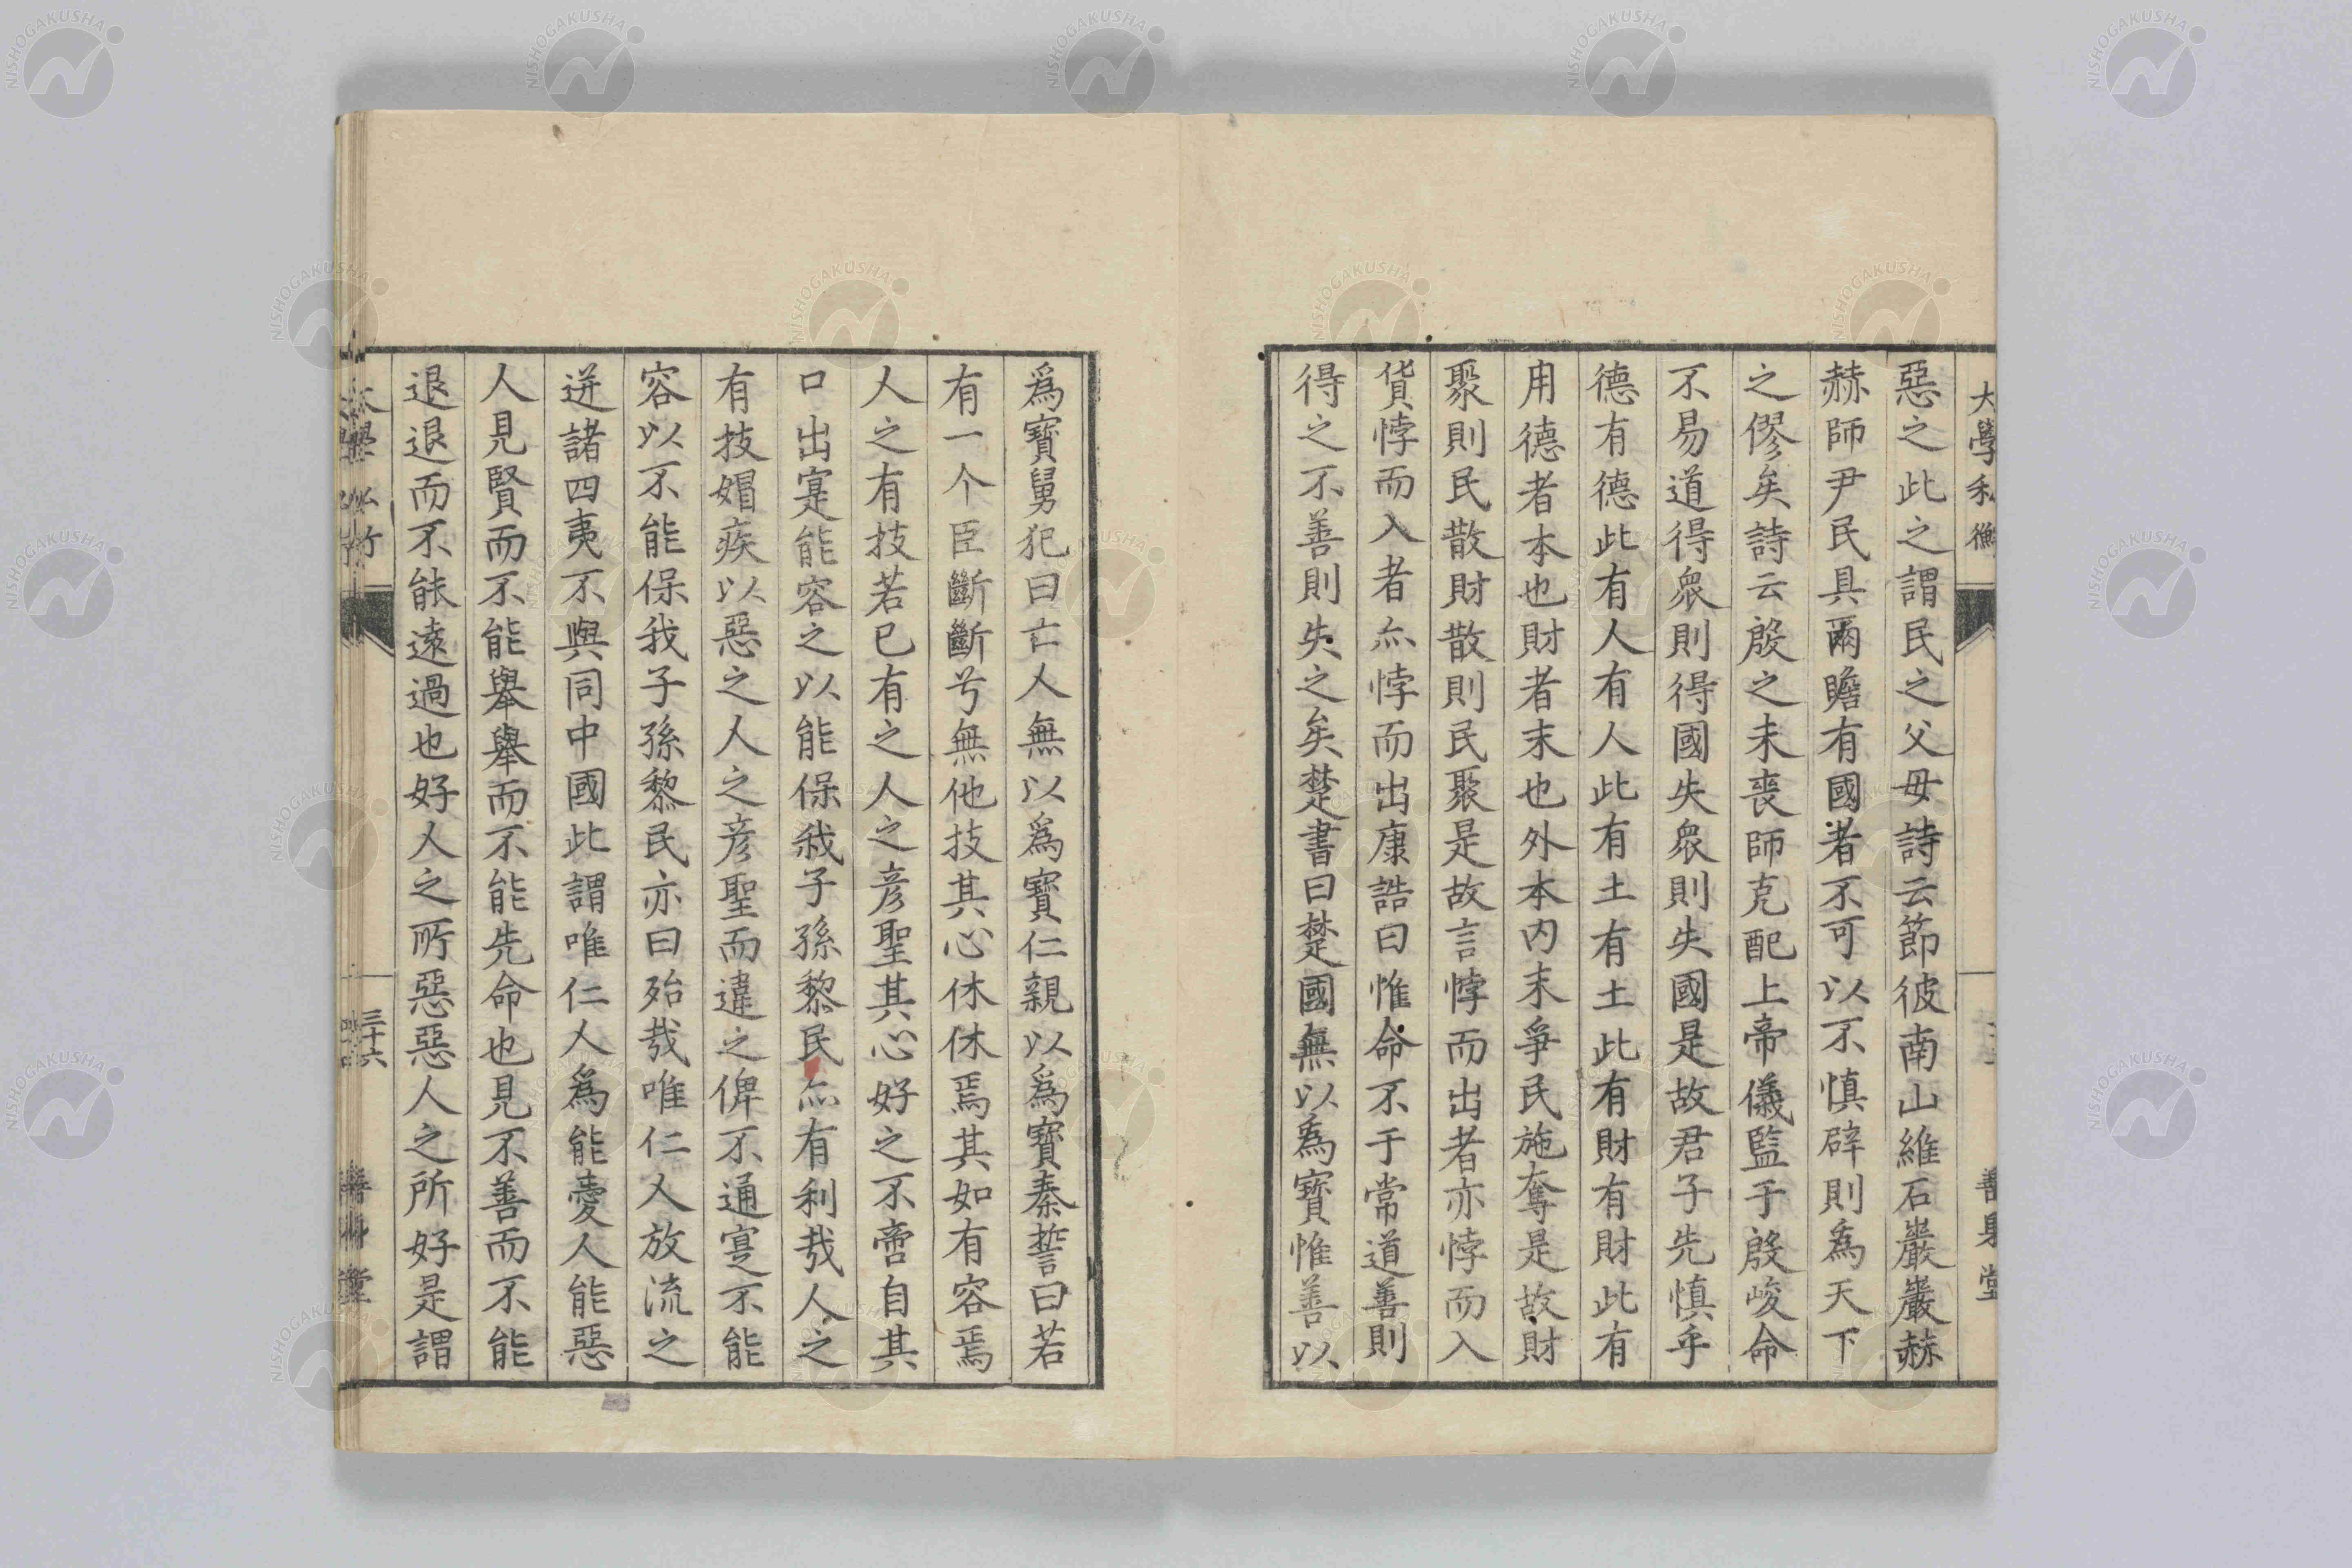 大學私衡
惡之此之謂民之父母詩云節彼南山維石巖巖赫
赫師尹民具爾瞻有國者不可以不慎辟則爲天下
之僇矣詩云殷之未喪師克配上帝儀監于殷峻命
不易道得衆則得國失衆則失國是故君子先慎乎
德有德此有人有人此有土有土此有財有財此有
用德者本也財者末也外本内末爭民施奪是故財
聚則民散財散則民聚是故言悖而出者亦悖而入
貨悖而入者亦悖而出康誥曰惟命不于常道善則
得之不善則失之矣楚書曰楚國無以爲寶惟善以
爲寶舅犯曰亡人無以爲寶仁親以爲寶秦誓曰若
有一个臣斷斷兮無他技其心休休焉其如有容焉
人之有技若己有之人之彦聖其心好之不啻自其
口出寔能容之以能保我子孫黎民亦有利哉人之
有技媢疾以惡之人之彦聖而違之俾不通寔不能
容以不能保我子孫黎民亦曰殆哉唯仁人放流之
迸諸四夷不與同中國此謂唯仁人爲能愛人能惡
人見賢而不能舉舉而不能先命也見不善而不能
退退而不能遠過也好人之所惡惡人之所好是謂
三十六
NISHOGAKUSHA